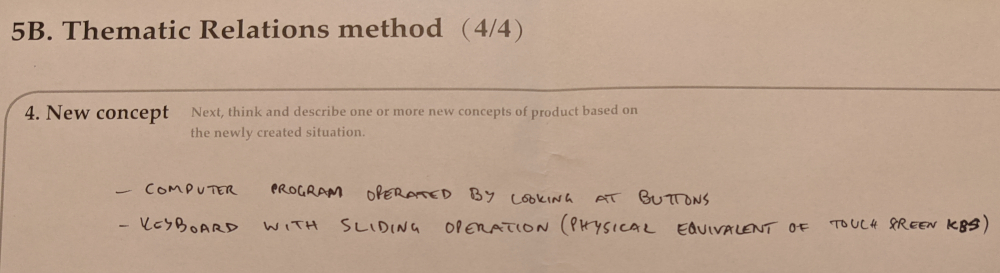 5B. Thematic Relations method (4/4)
4. New concept Next, think and describe one or more new concepts of product based on
the newly created situation.
- COMPUTER PROGRAM OPERATED BY LOOKING AT BUTTONS
- KEYBOARD WITH SLIDING OPERATION (PHYSICAL EQUIVALENT OF TOUCH SCREEN KBS)